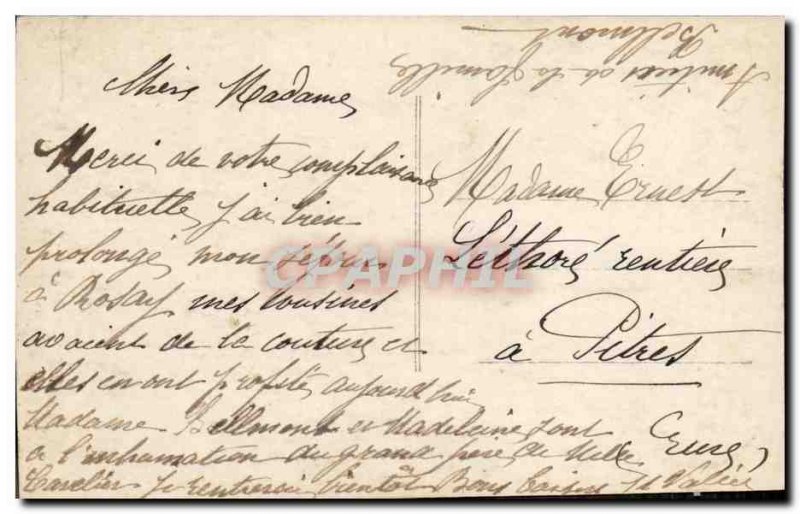 Chère Madame
Merci de votre complaisance
habituelle, j'ai bien
prolongé mon séjour
à Rosay mes cousines
avaient de la couture et
elles en ont profité, aujourd'hui
Madame Bellmont et Madeleine sont
à l'inhumation du grand père de Melle
Cavelier Je rentrerai bientôt Bons baisers
Amitiés de la famille
Bellmont
Madame Ernest
Léthoré rentière
à Pîtres
Eure
CPAPHIL